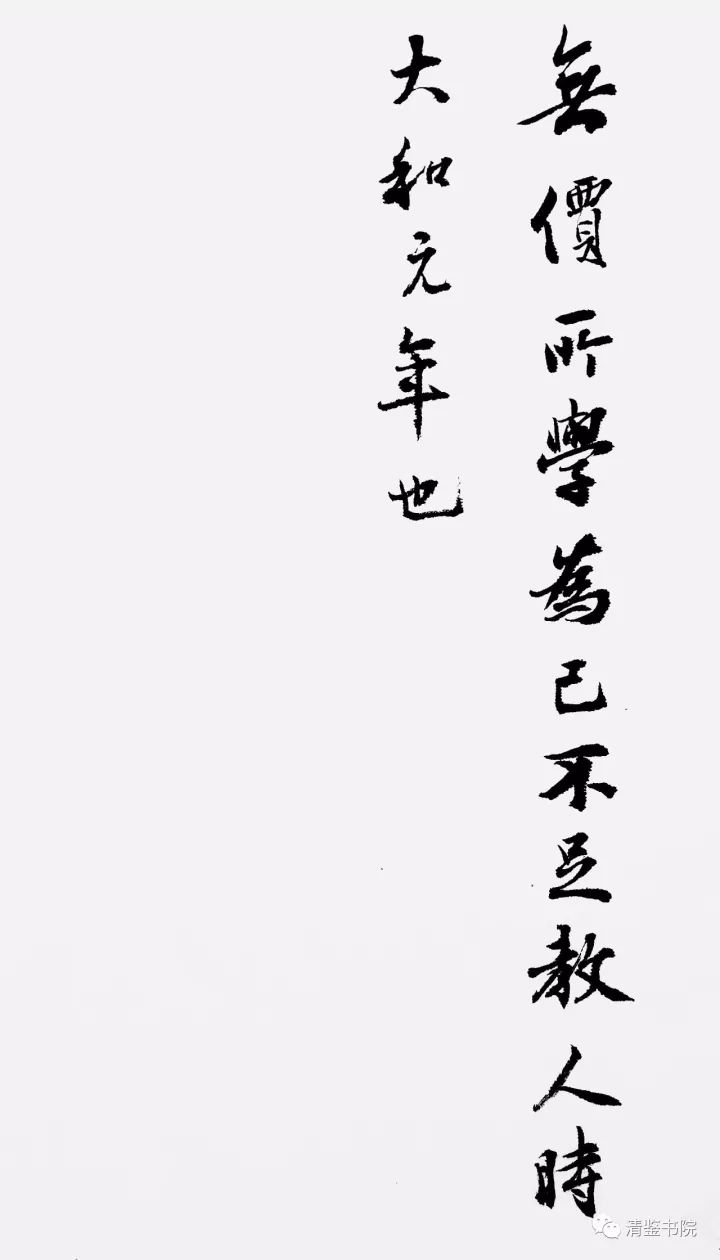 無價所學為己不足教人時
大和元年也
清鉴书院